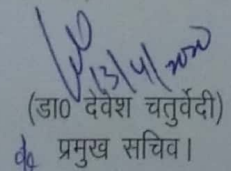 13/4/2020
(डा० देवेश चतुर्वेदी)
प्रमुख सचिव।